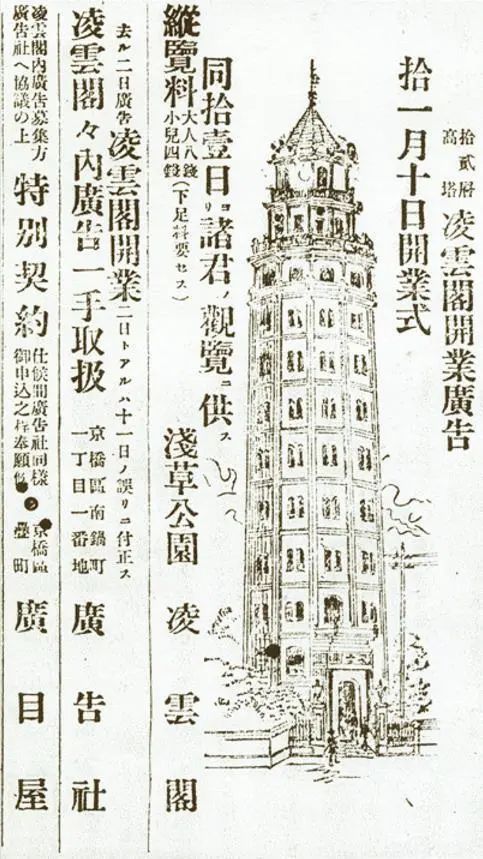 拾貳層
高塔
凌雲閣開業廣吿
拾一月十日開業式
同拾壹日ヨリ諸君ノ觀覽ニ供ス
縱覽料
大人八錢
小兒四錢
(下足料要セス)
淺草公園 凌雲閣
去ル二日廣告
凌雲閣開業
二日トアルハ十一日ノ誤リニ付正ス
凌雲閣々內廣告一手取扱
京橋區南鍋町
一丁目一番地
廣告社
凌雲閣內廣告募集方
廣告社ヘ協議の上
特別契約
仕候間廣告社同樣
御申込之程奉願候
京橋區
疊町
廣目屋